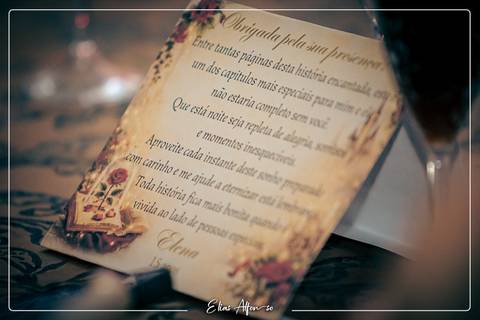 Obrigada pela sua presença
Entre tantas páginas desta história encantada, este
um dos capítulos mais especiais para mim e
não estaria completo sem você.
Que esta noite seja repleta de alegria, sorrisos
e momentos inesquecíveis.
Aproveite cada instante deste sonho preparado
com carinho e me ajude a eternizar esta lembrança
Toda história fica mais bonita quando
vivida ao lado de pessoas especiais
Elena
15
Elias Alfonso